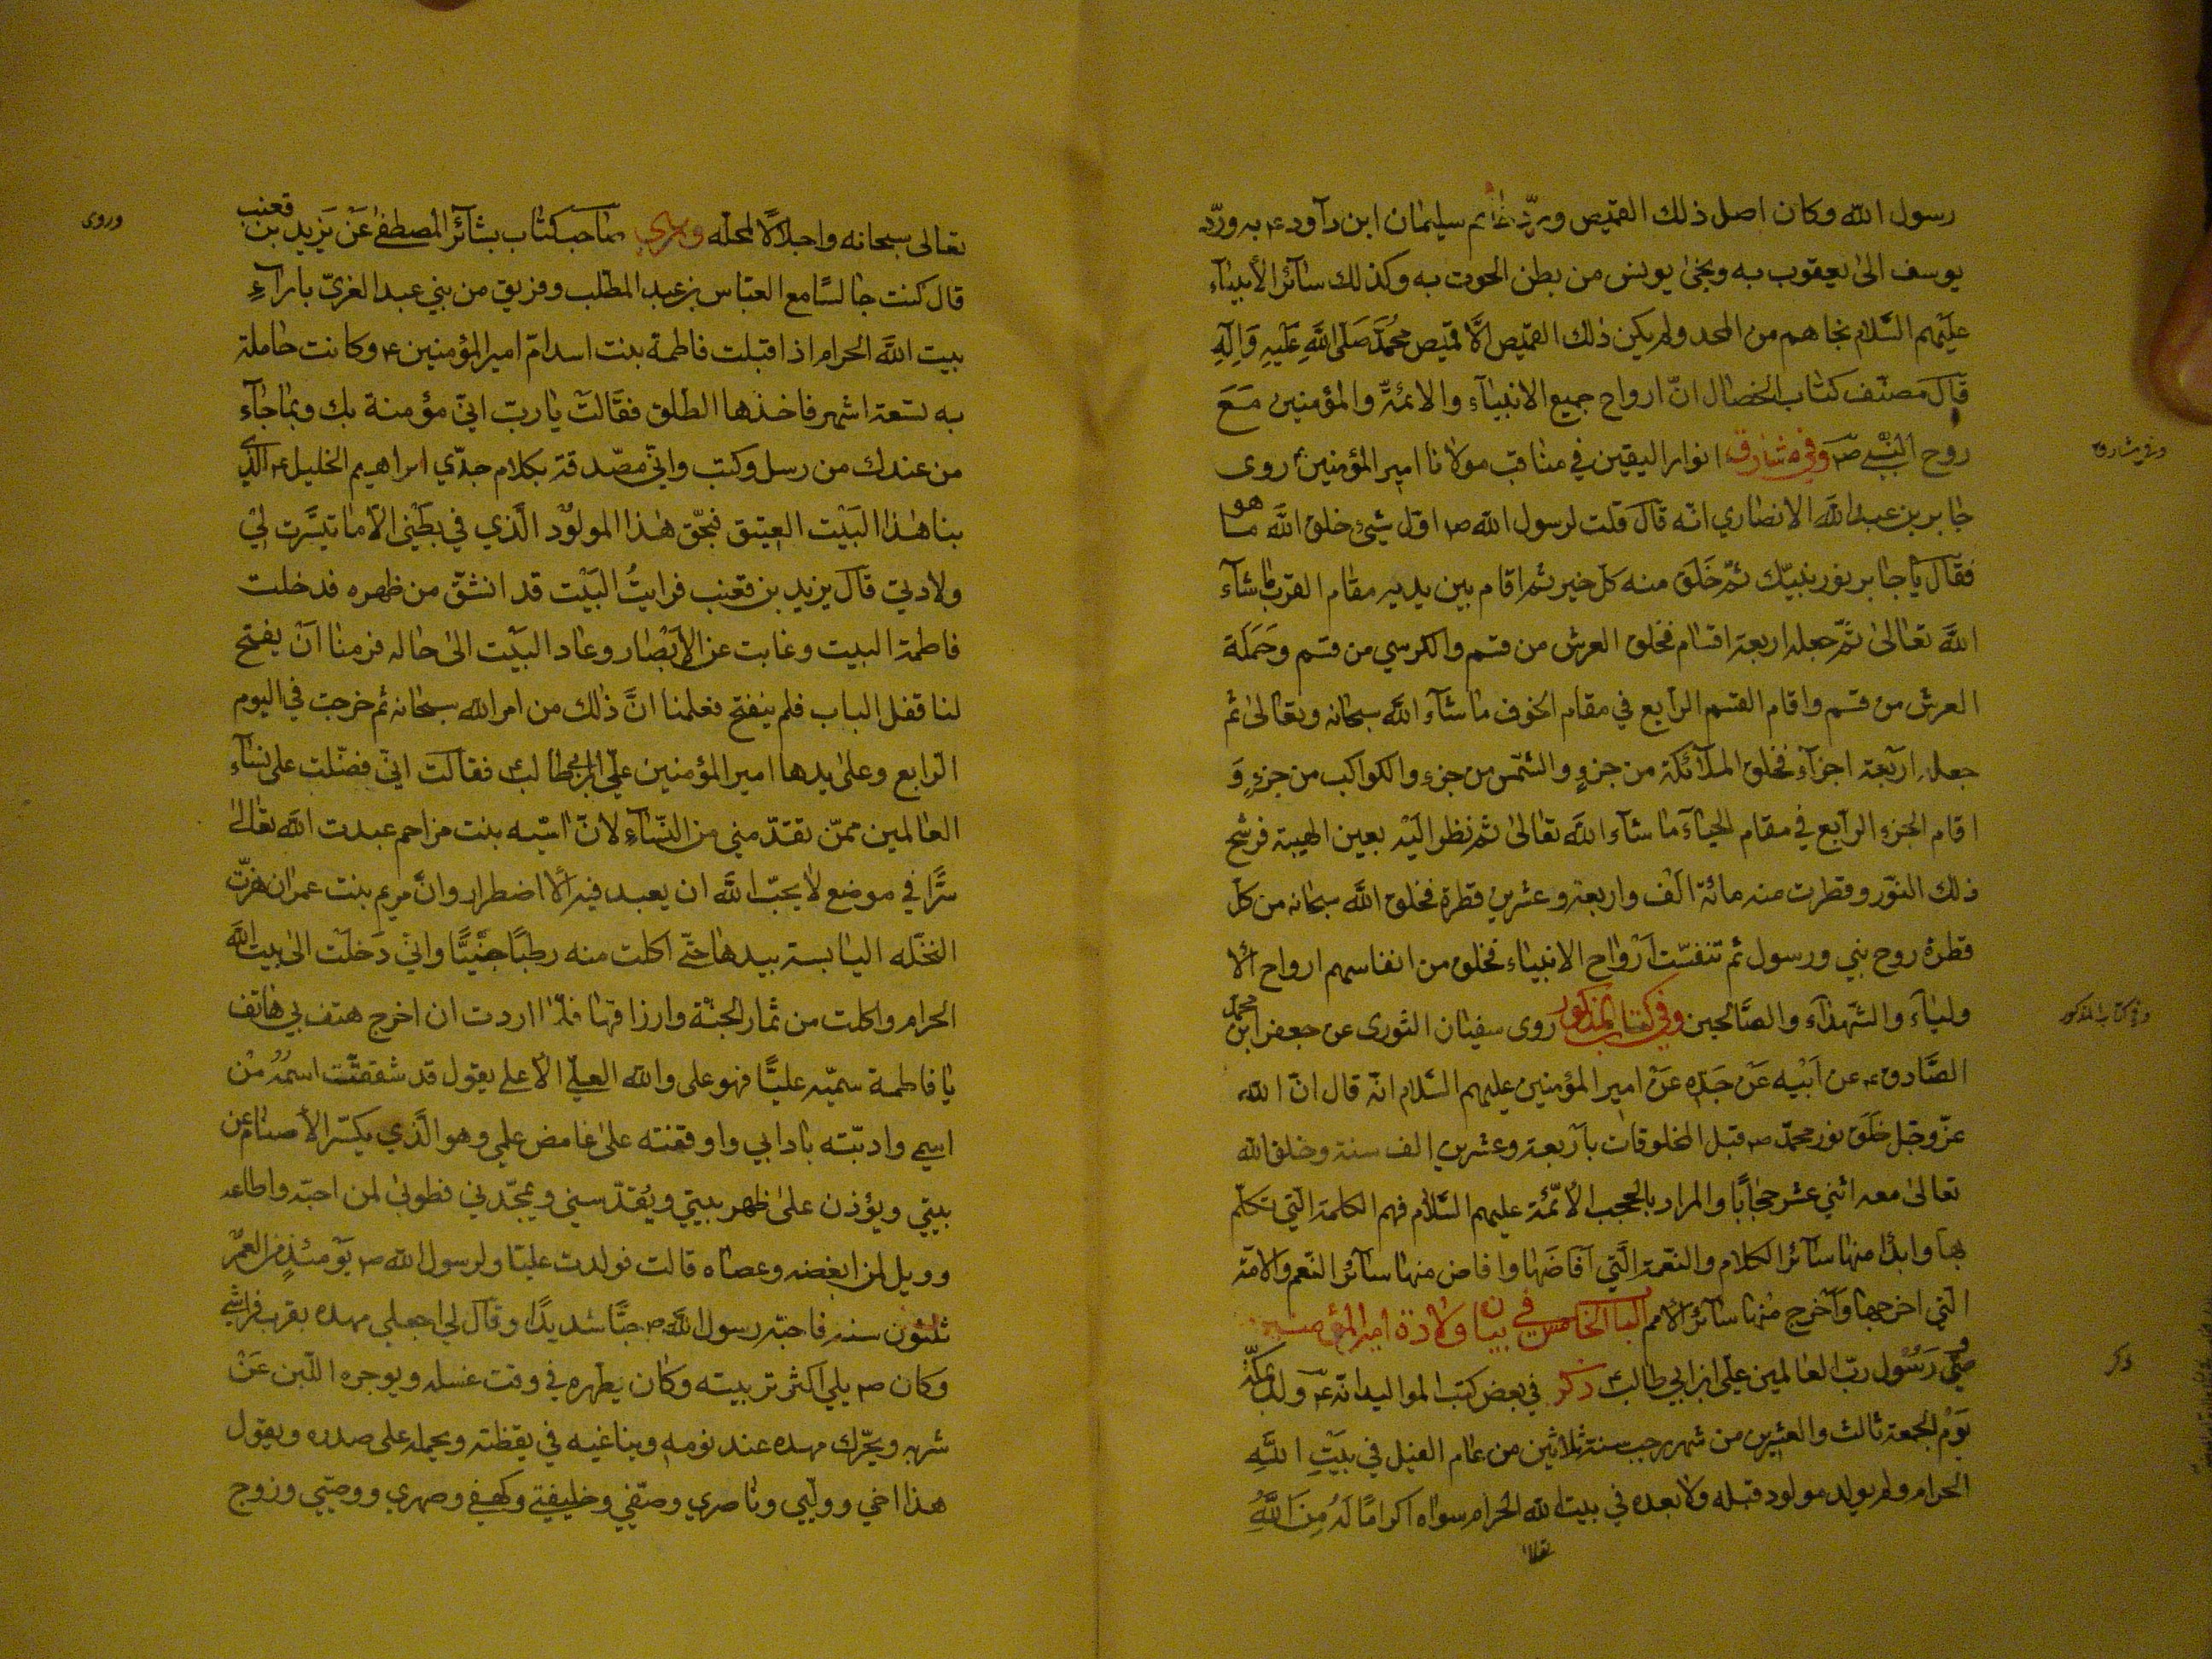 رسول الله وكان اصل ذلك القميص وردّ خاتم سليمان ابن داود ع به وردّ
يوسف الى يعقوب به ونجى يونس من بطن الحوت به وكذلك سائر الأنبياء
عليهم السّلام نجاهم من المحد ولم يكن ذلك القميص الّا قميص محمّد صَلّى اللّه عليه وَالِهِ
قال مصنّف كتاب الخصال انّ ارواح جميع الانبياء والائمّة والمؤمنين مَعَ
روح النّبي ص وفي مشارق انوار اليقين في مناقب مولانا امير المؤمنين روى
جابر بن عبد اللّه الانصاري انّه قال قلت لرسول الله ص اوّل شيئ خلق اللّه ما هو
فقال يا جابر نور نبيّك ثمّ خَلَقَ منه كل خير ثم اقام بين يديه مقام القرب ما شاء
اللّه تعالى ثمّ جعله اربعة اقسام فخلق العرش من قسم والكرسي من قسم وحَمَلَة
العرش من قسم واقام القسم الرابع في مقام الخوف ما شاء اللّه سبحانه وتعالى ثم
جعله اربعة اجزاء فخلق الملائكة من جزءٍ والشمس من جزء والكواكب من جزءٍ وَ
اقام الجزء الرابع في مقام الحياء ما شاء اللّه تعالى ثم نظر اليه بعين الهيبة فرشح
ذلك النور وقطرت منه مائة الف واربعة وعشرين قطرة فخلق اللّه سبحانه من كل
قطرة روح نبي ورسول ثم تنفّست ارواح الانبياء فخلق من انفاسهم ارواح الا
ولياء والشهداء والصّالحين وفي كتاب المذكور روى سفيان الثورى عن جعفر ابن محمد
الصّادق ع عن ابيه عَنْ جَدّه عَنْ امير المؤمنين عليهم السّلام انّه قال انّ الله
عزّ وجّل خَلَقَ نور محمدّ ص قبل المخلوقات بأربعة وعشرين الف سنة وخلق الله
تعالى معه اثني عشر حجاباً والمراد بالحجب الأئمّة عليهم السّلام فهم الكلمة الّتي تكلّم
بها وابدا منها سائر الكلام والنّعمة الّتي افاضَها وافاض منها سائر النّعم والامّة
الّتي اخرجها واخرج منها سائر الأمم الباب الخامس في بيان ولادة امير المؤمنين
وصّي رَسُول ربّ العالمين علي ابن ابي طالب ذكر في بعض كتب المواليد انّه ع ولد بمكّة
يَوْم الجمعة ثالث والعشرين من شهر رجب سنة ثلاثين من عام الفيل في بَيْتِ اللَّهِ
الحرام ولم يولد مولود قبله ولا بعده في بيت الله الحرام سواه اكرامًا لَهُ مِنَ اللَّهِ
تعالى
وفي مشارق
وفي كتاب المذكور
ذكر
تعالى سبحانه واجلالًا لمحلّه وروي صاحب كتاب بشائر المصطفى عَنْ يَزيد بن قعنب
قال كنت جالسًا مع العبّاس بن عبد المطلب وفريق من بني عبد العزيّ بازاءِ
بيت اللّه الحرام اذ اقبلت فاطمة بنت اسد امّ امير المؤمنين ع وكانت حاملة
به لتسعة اشهر فاخذها الطلق فقالت يا ربّ انيّ مؤمنة بك وبما جاء
من عندك من رسل وكتب وانيّ مصّدقة بكلام جدّي ابراهيم الخليل ع الّذي
بنا هذا البَيْت العتيق فبحقّ هذا المولوُد الّذي في بَطْني الّا ما تيسّرت لي
ولادتي قال يزيد بن قعنب فرايتُ البَيْت قد انشقّ من ظهره فدخلت
فاطمة البيت وغابت عن الابْصار وعاد البَيْت الى حاله فرمنا اَنْ يفتح
لنا قفل الباب فلم ينفتح فعلمنا انَّ ذلك من امر الله سبحانه ثم خرجت في اليوم
الرّابع وعلى يدها امير المؤمنين عليّ ابن ابي طالب ع فقالت انيّ فضّلت على نساءِ
العالمين ممّن تقدّمني من النّساءِ لانّ اسيه بنت مزاحم عبدت اللّه تعالى
سرًّا في موضع لا يحبّ اللّه ان يعبد فيه الّا اضطرار وانّ مريم بنت عمران هزّت
النخله اليابسة بيدها حتّى اكلت منه رطبًا جنيًّا وانيّ دَخلَت الى بيت اللّه
الحرام واكلت من ثمار الجنّة وارزاقها فلمّا اردت ان اخرج هتف بي هاتف
يا فاطمة سميّه عليًّا فهو على والله العليّ الأعلى يقول قد شققت اسمهُ مْن
اسمي وادبّته بادابي واوقفته على غامض علمي وهو الّذي يكسّر الأصنام عن
بيتي ويؤذن على ظهر بيتي ويُقدّسني ويمجّدني فطوبى لمن احبّه واطاعه
وويل لمن ابغضه وعصاه قالت فولدت عليًّا ولرسول الله ص يَوْمئذٍ من العمر
ثلثون سنه فاحبّه رسول اللّه ص حبًّا شديدًا وقال لي اجعلي مهده بقرب فراشي
وكان ص يلي اكثر تربيته وكان يطهره في وقت غسله ويوجره اللّبن عَنْ
شربه ويحّرك مهده عند نومه ويناغيه في يقظته ويحمله على صدره ويقول
هذا اخي ووليّي وناصري وصفيّي وخليفتي وكهفي وصهري ووصيّي وزوج
وروى